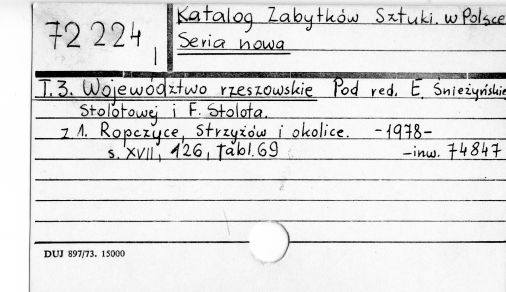 72 224 I
Katalog Zabytków Sztuki. w Polsce
Seria nowa
T.3. Województwo rzeszowskie Pod red. E. Śnieżyńskiej
Stolotowej i F. Stolota.
z 1. Ropczyce, Strzyżów i okolice. -1978-
s. XVII, 126, tabl. 69 -inw. 74847
DUJ 897/73. 15000